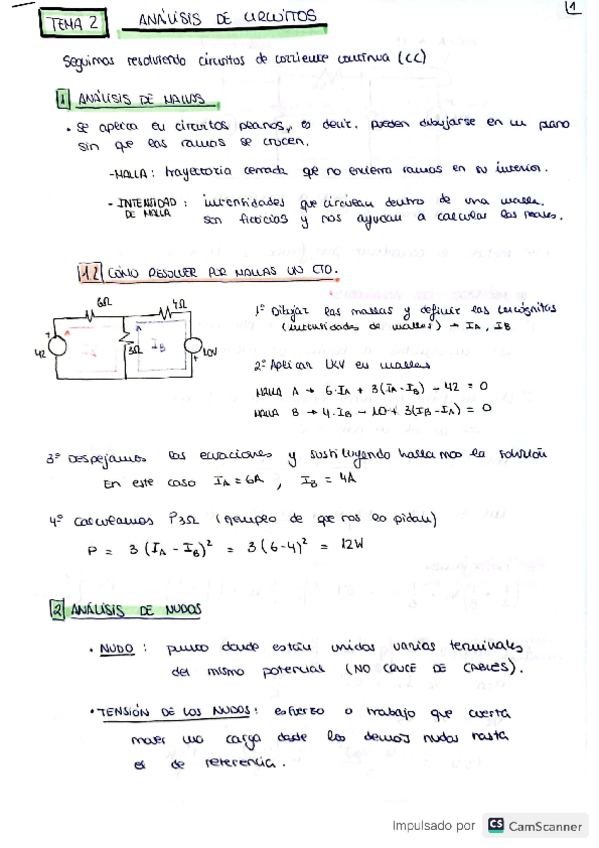 1
TEMA 2 ANÁLISIS DE CIRCUITOS
Seguimos resolviendo circuitos de corriente continua (CC)
1 ANÁLISIS DE MALLAS
• Se aplica en circuitos planos, es decir, pueden dibujarse en un plano
sin que las ramas se crucen.
- MALLA : trayectoria cerrada que no encierra ramas en su interior.
- INTENSIDAD DE MALLA : intensidades que circulan dentro de una malla.
son ficticias y nos ayudan a calcular las reales.
1.2 CÓMO RESOLVER POR MALLAS UN CTO.
6Ω 4Ω
42 IA 3Ω IB 10V
1º Dibujar las mallas y definir las incógnitas
(intensidades de mallas) → IA, IB
2º Aplicar LKV en mallas
MALLA A → 6·IA + 3(IA-IB) - 42 = 0
MALLA B → 4·IB - 10 + 3(IB-IA) = 0
3º Despejamos las ecuaciones y sustituyendo hallamos la solución
En este caso IA = 6A , IB = 4A
4º Calculamos P3Ω (ejemplo de que nos lo pidan)
P = 3 (IA - IB)² = 3(6-4)² = 12W
2 ANÁLISIS DE NUDOS
• NUDO : punto donde están unidas varias terminales
del mismo potencial (NO CRUCE DE CABLES).
• TENSIÓN DE LOS NUDOS : esfuerzo o trabajo que cuesta
mover una carga desde los demás nudos hasta
el de referencia.
Impulsado por CS CamScanner